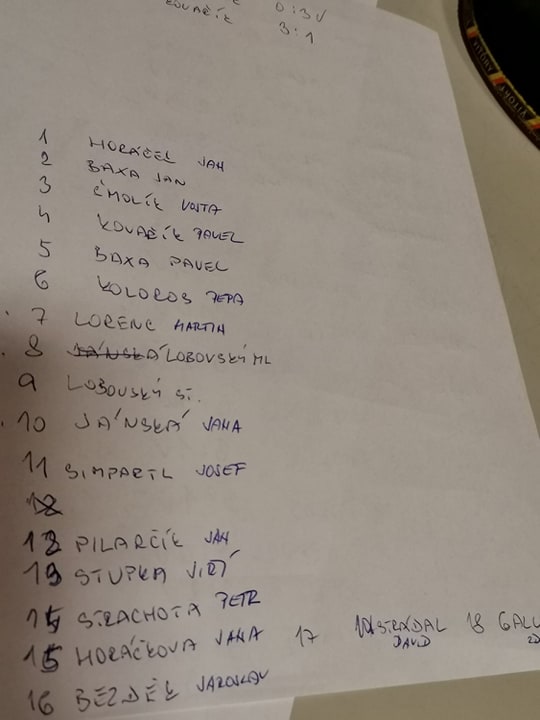 0:3V
KOVAŘÍK 3:1
1 HORÁČEK JAN
2 BAXA JAN
3 ČMOLÍK VOJTA
4 KOVAŘÍK PAVEL
5 BAXA PAVEL
6 KOLOROS PEPA
7 LORENC MARTIN
8 LOBOVSKÝ ML
9 LOBOVSKÝ ST.
10 JÁNSKÁ JANA
11 SIMPARTL JOSEF
12 PILARČÍK JAN
13 STUPKA JIŘÍ
14 STRACHOTA PETR
15 HORÁČKOVA JANA 17 STRÁDAL DAVID 18 GALL
16 BEZDĚK JAROSLAV